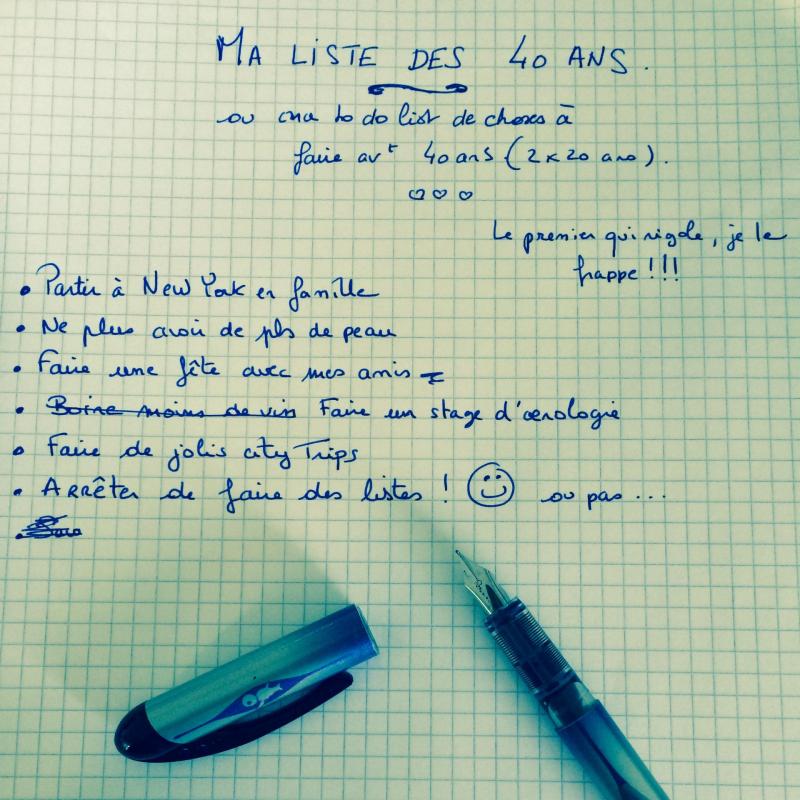 MA LISTE DES 40 ANS.
ou ma to do list de choses à
faire avt 40 ans (2x20 ans).
♡♡♡
Le premier qui rigole, je le
frappe !!!
• Partir à New York en famille
• Ne plus avoir de pbs de peau
• Faire une fête avec mes amis
• Boire moins de vin Faire un stage d'œnologie
• Faire de jolis city Trips
• ARRÊTER de faire des listes ! ☺ ou pas ...
•